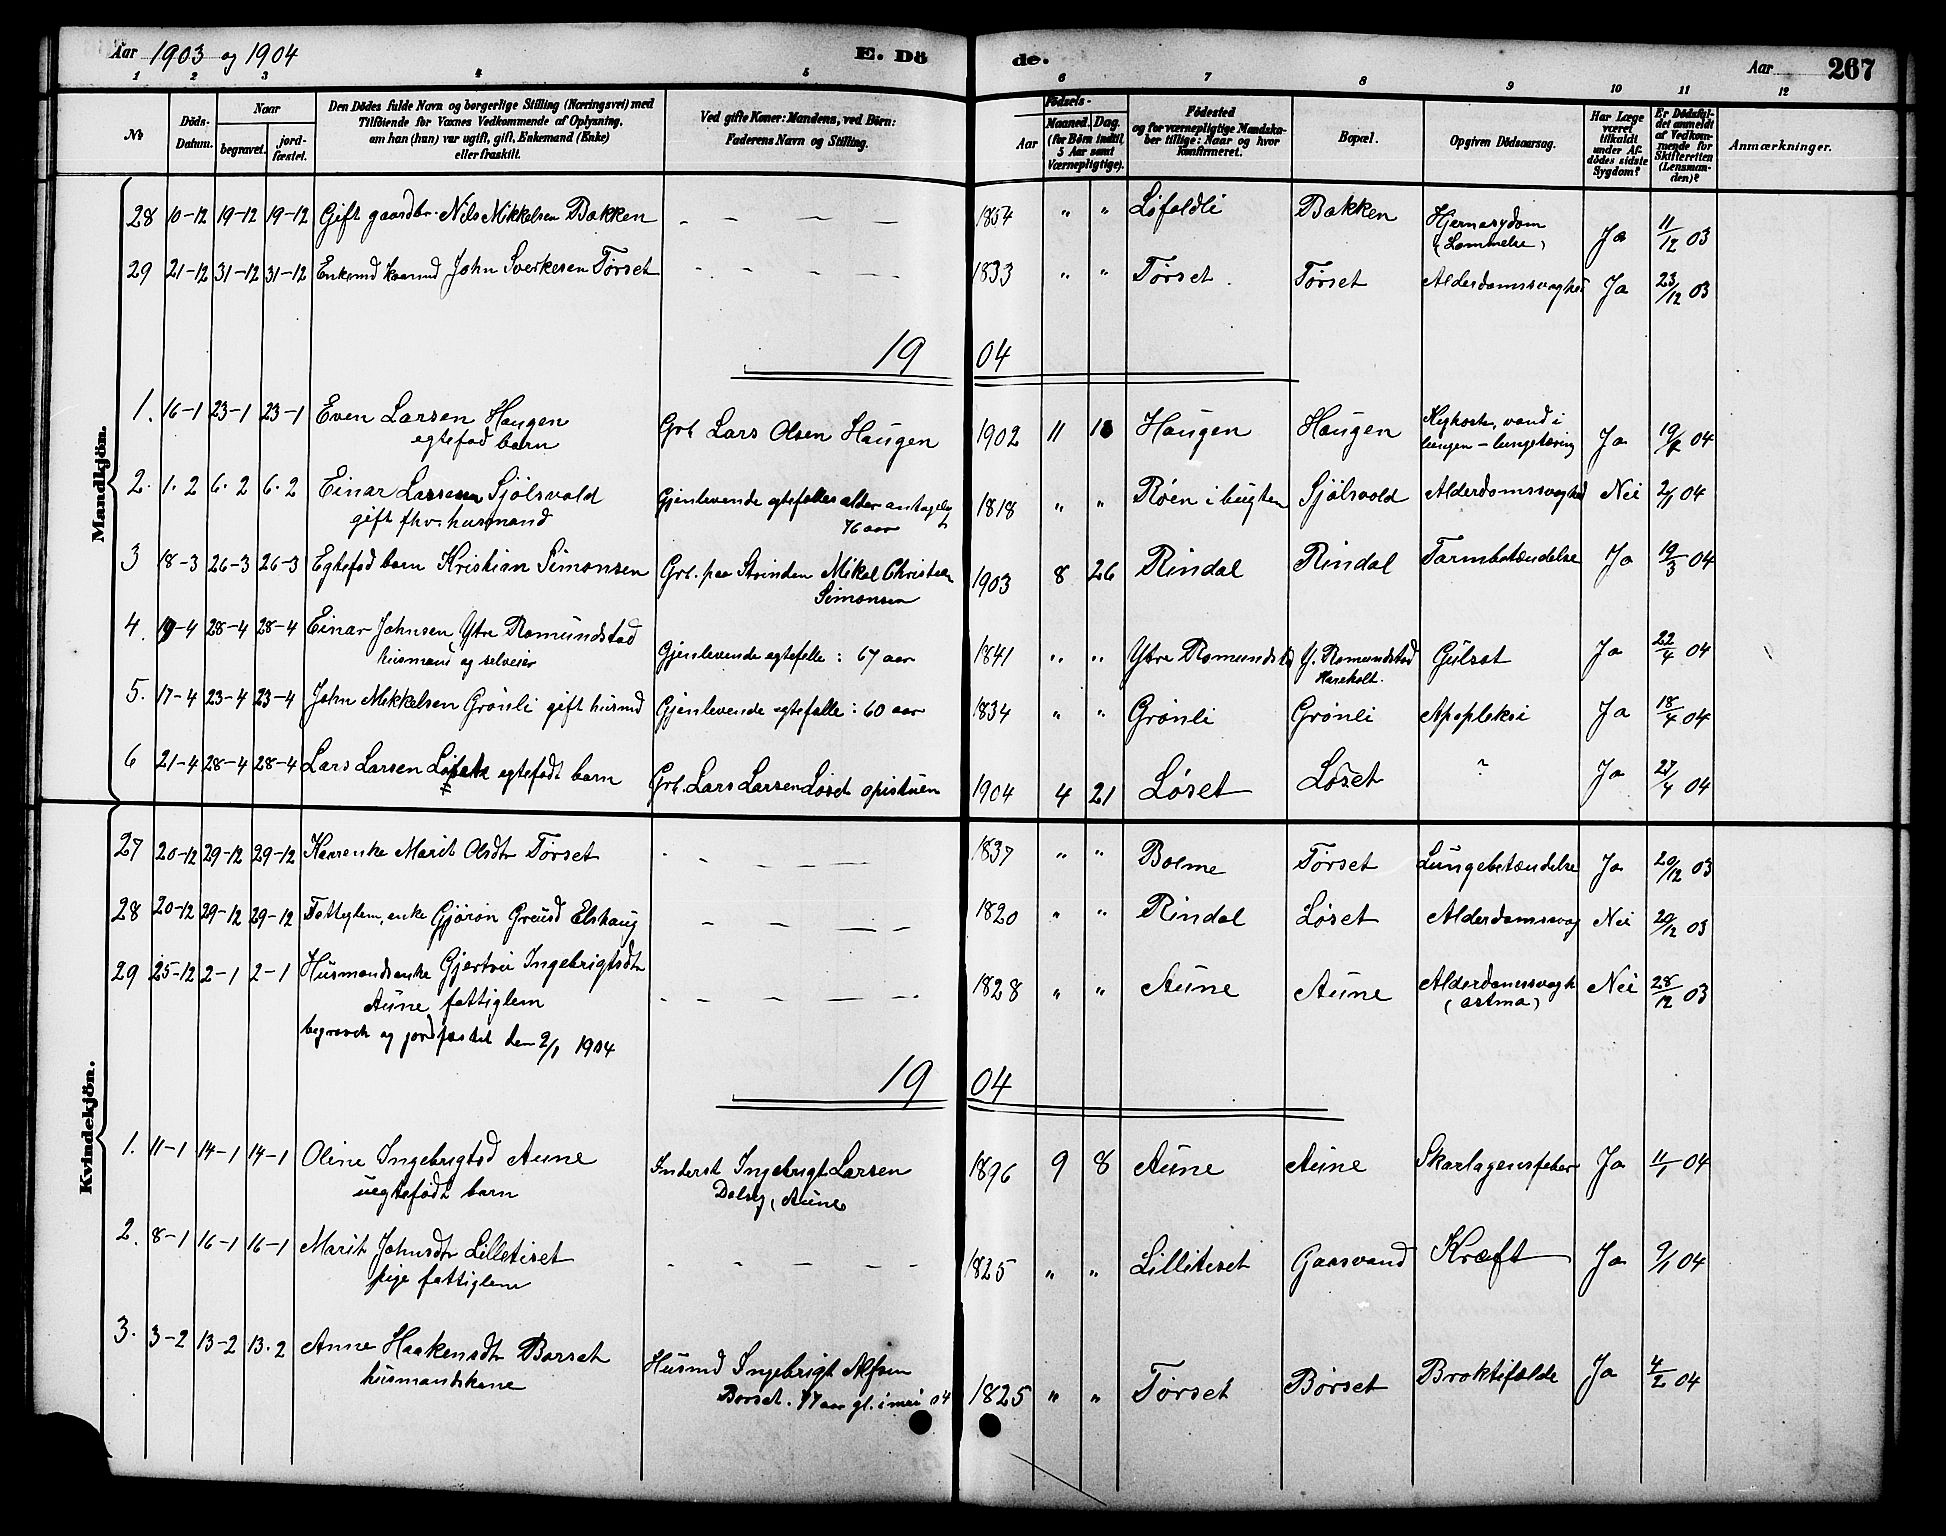 Aar 1903 og 1904 E. Dö de. Aar 267
1 2 3 4 5 6 7 8 9 10 11 12
No
Döds-Datum.
Naar
begravet.
jord-fæstet.
Den Dödes fulde Navn og borgerlige Stilling (Næringsvei) med
Tilföiende for Voxnes Vedkommende af Oplysning,
om han (hun) var ugift, gift, Enkemand (Enke)
eller fraskilt.
Ved gifte Koner: Mandens, ved Börn:
Faderens Navn og Stilling.
Födsels-
Aar
Maaned. Dag.
(for Börn indtil
5 Aar samt
Værnepligtige).
Födested
og for værnepligtige Mandska-
ber tillige: Naar og hvor
konfirmeret.
Bopæl.
Opgiven Dödsaarsag.
Har Læge
været
tilkaldt
under Af-
dödes sidste
Sygdom?
Er Dödsfal-
det anmeldt
af Vedkom-
mende for
Skifteretten
(Lensman-
den)?
Anmærkninger.
Mandkjön.
28 10-12 19-12 19-12 Gift gaardbr. Nils Mikkelsen Bakken - - - - 1854 " " Löfaldli Bakken Hjernesygdom (Lammelse) Ja 11/12 03
29 21-12 31-12 31-12 Enkemd kaarmd John Sverkesen Törset - - - - 1833 " " Törset Törset Alderdomssvaghed Ja 23/12 03
19 04
1. 16-1 23-1 23-1 Even Larsen Haugen Grb. Lars Olsen Haugen 1902 11 Haugen Haugen Kighoste, vand i
egtefød barn lungen - lungetæring Ja 04
2. 1.2 6.2 6.2 Einar Larsen Sjölsvold Gjenlevende egtefælles alder antagelig 1818 " " Röen i bugten Sjölsvold Alderdomssvaghed Nei 2/1 04
gift fhv. husmand 76 aar
3 18-3 26-3 26-3 Egtefød barn Kristian Simonsen Grb. paa Strinden Mikal Christian 1903 8 26 Rindal Rindal Tarmbetændelse Ja 19/3 04
Simonsen
4. 19-4 28-4 28-4 Einar Johnsen Ytre Romundstad Gjenlevende egtefælle: 67 aar 1841 " " Ytre Romundstad Y. Romundstad Gulsot Ja 22/4 04
husmand og selveier Hareholt.
5. 17-4 23-4 23-4 John Mikkelsen Grönli gift husmd Gjenlevende egtefælle: 60 aar 1834 " " Grönli Grönli Apopleksi Ja 18/4 04
6 21-4 28-4 28-4 Lars Larsen Löset egtefödt barn Grb. Lars Larsen Löset opistuen 1904 4 21 Löset Löset ? Ja 27/4 04
Kvindekjön.
27 20-12 29-12 29-12 Kaarenke Marit Olsdtr Törset - - - - 1837 " " Bolme Törset Lungebetændelse Ja 20/12 03
28 20-12 29-12 29-12 Fattiglem, enke Gjörön Elshaug - - - - 1820 " " Rindal Löset Alderdomssvag Nei 20/12 03
29 25-12 2-1 2-1 Husmandsenke Gjertrü Ingebrigtsdtr - - - - 1828 " " Aune Aune Alderdomssvagh Nei 28/12 03
Aune fattiglem (astma)
begravet og jordfæstet den 2/1 1904
19 04
1. 11-1 14-1 14-1 Oline Ingebrigtsd Aune Inderst Ingebrigt Larsen 1896 9 8 Aune Aune Skarlagensfeber Ja 11/1 04
uegtefødt barn Dalseg (Aune)
2. 8-1 16-1 16-1 Marit Johnsdtr Lilletiset - - - - 1825 " " Lilletiset Gaasvand Kræft Ja 9/1 04
pige fattiglem
3. 3-2 13-2 13.2 Anne Haakensdtr Börset Husmd Ingebrigt Alfsen 1825 " " Törset Börset Broktifælde Ja 4/2 04
husmandskone Börset. 77 aar gl. i mai 04